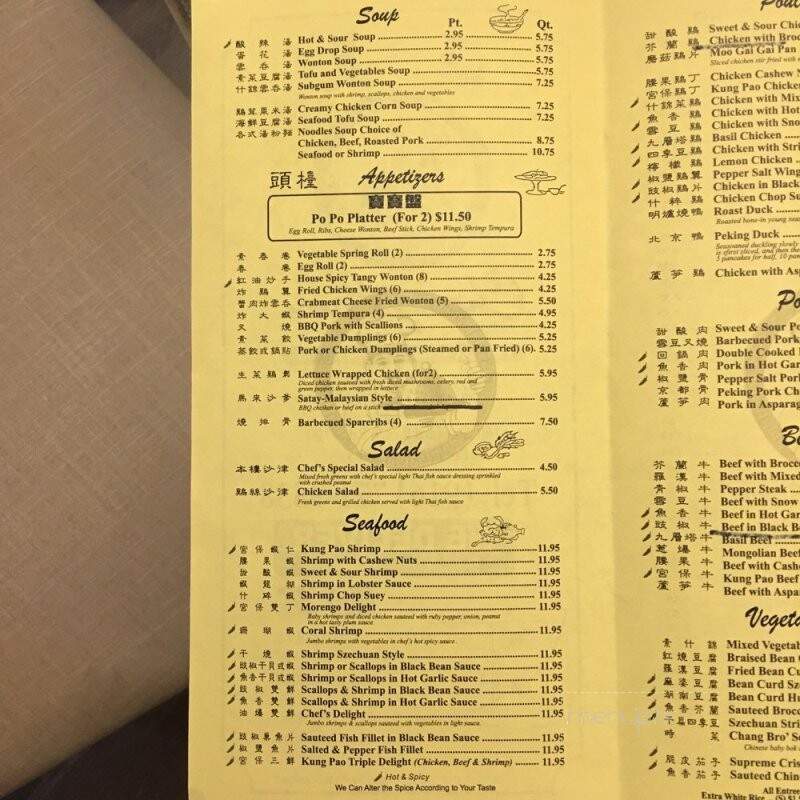 Soup
Pt. Qt.
酸辣湯 Hot & Sour Soup 2.95 5.75
蛋花湯 Egg Drop Soup 2.95 5.75
雲吞湯 Wonton Soup 2.95 5.75
素菜豆腐湯 Tofu and Vegetables Soup 5.75
什錦雲吞湯 Subgum Wonton Soup 7.25
Wonton soup with shrimp, scallops, chicken and vegetables
鷄茸粟米湯 Creamy Chicken Corn Soup 7.25
海鮮豆腐湯 Seafood Tofu Soup 7.25
各式湯粉麵 Noodles Soup Choice of
Chicken, Beef, Roasted Pork 8.75
Seafood or Shrimp 10.75
頭檯 Appetizers
寶寶盤
Po Po Platter (For 2) $11.50
Egg Roll, Ribs, Cheese Wonton, Beef Stick, Chicken Wings, Shrimp Tempura
素春卷 Vegetable Spring Roll (2) 2.75
春卷 Egg Roll (2) 2.75
紅油炒手 House Spicy Tangy Wonton (8) 4.25
炸鷄翼 Fried Chicken Wings (6) 4.25
蟹肉炸雲吞 Crabmeat Cheese Fried Wonton (5) 5.50
炸大蝦 Shrimp Tempura (4) 4.95
叉燒 BBQ Pork with Scallions 4.25
素菜餃 Vegetable Dumplings (6) 5.25
蒸餃或鍋貼 Pork or Chicken Dumplings (Steamed or Pan Fried) (6). 5.25
生菜鷄鬆 Lettuce Wrapped Chicken (for2) 5.95
Diced chicken sauteed with fresh diced mushrooms, celery, red and
green pepper, then wrapped in lettuce
馬來沙爹 Satay-Malaysian Style 5.95
BBQ chicken or beef on a stick
燒排骨 Barbecued Spareribs (4) 7.50
Salad
本樓沙律 Chef's Special Salad 4.50
Mixed fresh greens with chef's special light Thai fish sauce dressing sprinkled
with crushed peanut
鷄絲沙律 Chicken Salad 5.50
Fresh greens and grilled chicken served with light Thai fish sauce
Seafood
宮保蝦仁 Kung Pao Shrimp 11.95
腰果蝦 Shrimp with Cashew Nuts 11.95
甜酸蝦 Sweet & Sour Shrimp 11.95
蝦龍糊 Shrimp in Lobster Sauce 11.95
什碎蝦 Shrimp Chop Suey 11.95
宮保雙丁 Morengo Delight 11.95
Baby shrimps and diced chicken sauteed with ruby pepper, onion, peanut
in a hot tasty plum sauce
珊瑚蝦 Coral Shrimp 11.95
Jumbo shrimps with vegetables in chef's hot spicy sauce
干燒蝦 Shrimp Szechuan Style 11.95
豉椒干貝或蝦 Shrimp or Scallops in Black Bean Sauce 11.95
魚香干貝或蝦 Shrimp or Scallops in Hot Garlic Sauce 11.95
豉椒雙鮮 Scallops & Shrimp in Black Bean Sauce 11.95
魚香雙鮮 Scallops & Shrimp in Hot Garlic Sauce 11.95
油爆雙鮮 Chef's Delight 11.95
Jumbo shrimps & scallops sauteed with vegetables in light sauce
豉椒魚片 Sauteed Fish Fillet in Black Bean Sauce 11.95
椒鹽魚片 Salted & Pepper Fish Fillet 11.95
宮保三鮮 Kung Pao Triple Delight (Chicken, Beef & Shrimp) 11.95
Hot & Spicy
We Can Alter the Spice According to Your Taste
甜酸鷄 Sweet & Sour Chi
芥蘭鷄 Chicken with Broc
磨菇鷄片 Moo Gai Gai Pan
Sliced chicken stir fried with
腰果鷄丁 Chicken Cashew
宮保鷄丁 Kung Pao Chicken
什錦菜鷄 Chicken with Mix
魚香鷄 Chicken with Hot
雪豆鷄 Chicken with Sno
九層塔鷄 Basil Chicken
四季豆鷄 Chicken with Stri
檸檬鷄 Lemon Chicken
椒鹽鷄翼 Pepper Salt Wing
豉椒鷄片 Chicken in Black
什碎鷄 Chicken Chop Su
明爐燒鴨 Roast Duck
Roasted bone-in young
北京鴨 Peking Duck
Seasoned duckling slowly
蘆筍鷄 Chicken with Asp
甜酸肉 Sweet & Sour Po
雪豆叉燒 Barbecued Pork
回鍋肉 Double Cooked
魚香肉 Pork in Hot Gar
椒鹽骨 Pepper Salt Pork
京都骨 Peking Pork Ch
蘆筍肉 Pork in Asparag
芥蘭牛 Beef with Brocc
羅漢牛 Beef with Mixed
青椒牛 Pepper Steak
雪豆牛 Beef with Snow
魚香牛 Beef in Hot Gar
豉椒牛 Beef in Black B
九層塔牛 Basil Beef
葱爆牛 Mongolian Beef
腰果牛 Beef with Cash
宮保牛 Kung Pao Beef
蘆筍牛 Beef with Aspa
Vegeta
素什錦 Mixed Vegetab
紅燒豆腐 Braised Bean
羅漢豆腐 Fried Bean Cu
麻婆豆腐 Bean Curd Sz
湖南豆腐 Bean Curd Hu
魚香芥蘭 Sauteed Brocc
干扁四季豆 Szechuan Stri
時菜 Chang Bro' S
Chinese baby bok
脆皮茄子 Supreme Cris
魚香茄子 Sauteed Chin
All Entree
Extra White Rice